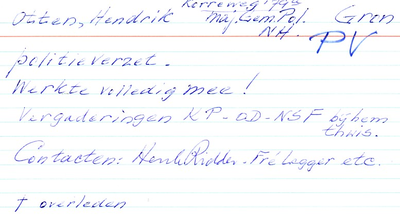 Korreweg 179a
Otten, Hendrik Maj. Gem. Pol. Gron
NH. PV
politieverzet.
Werkte volledig mee!
Vergaderingen KP-OD-NSF bij hem
thuis.
Contacten: Henk Ridder - Fré Legger etc.
† overleden